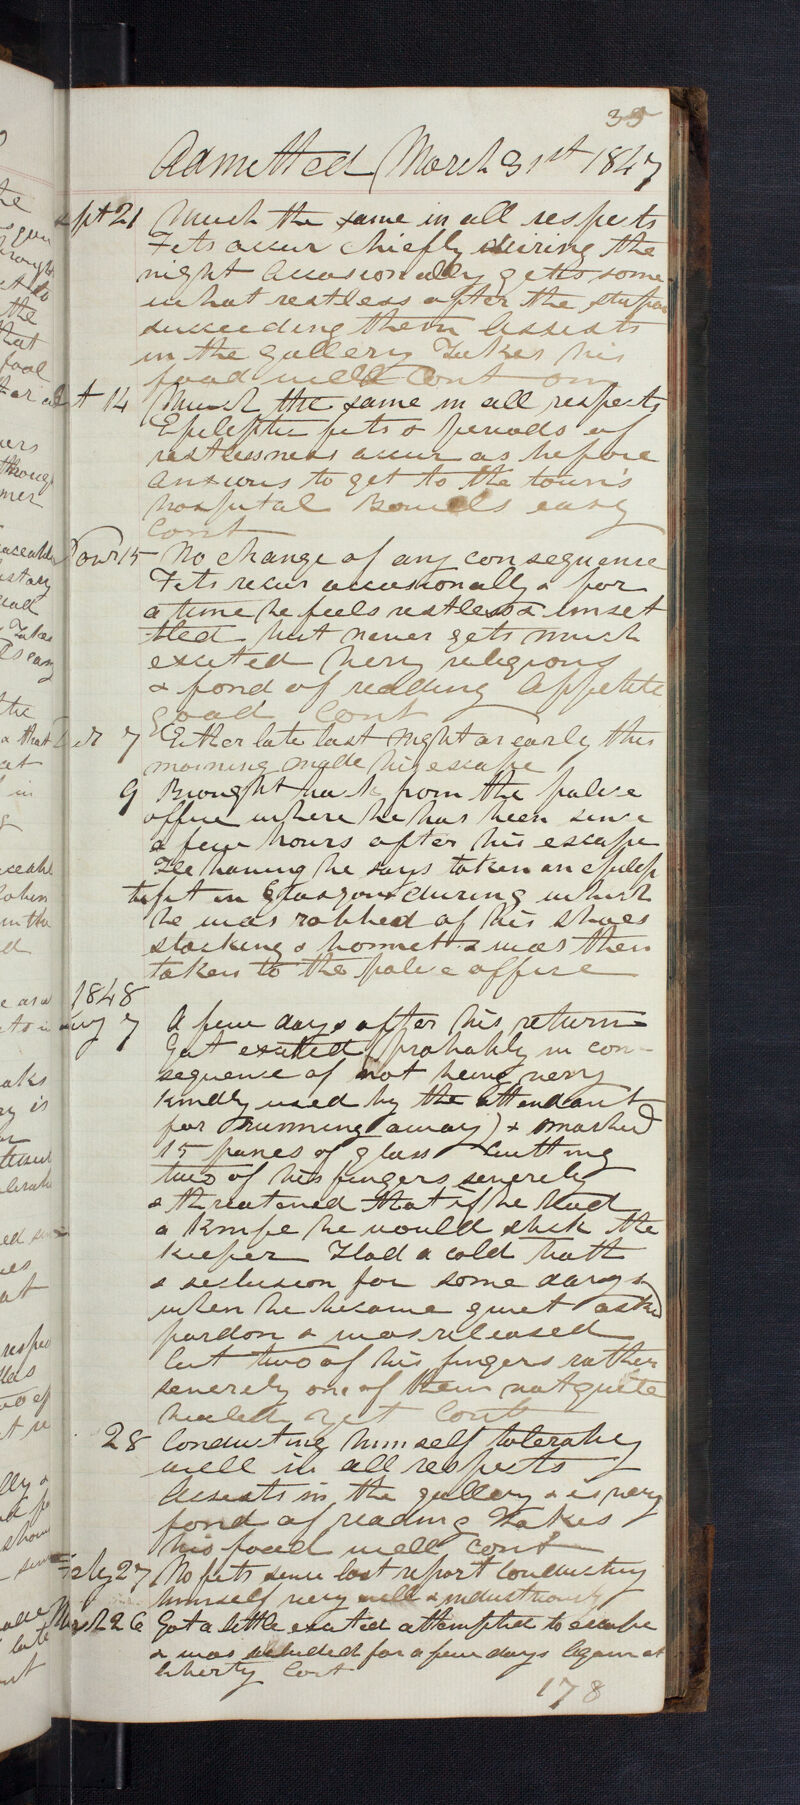 35
Admitted March 31st 1847
Sept 21 Much the same in all respects
Fits occur chiefly during the
night occasionally gets some
what restless after the stupor
succeeding them Assists
in the gallery Takes his
food well Cont om
Oct 14 Much the same in all respects
Epileptic fits & periods of
restlessness occur as before
anxious to get to the town's
hospital Bowels easy
Cont
Novr 15 No change of any consequence
Fits recur occasionally & for
a time he feels restless & unset
tled but never gets much
excited very religious
& fond of reading Appetite
good Cont
Decr 7 Either late last night or early this
morning made his escape
9 Brought back from the police
office where he has been since
a few hours after his escape
He having he says taken an epilep
tic fit in Glasgow during which
he was robbed of his shoes
stocking & bonnett & was then
taken to the police office
1848
Jany 7 A few days after his return
Got excited (probably in con-
sequence of not being very
kindly used by the attendant
for running away) & smashed
15 panes of glass cutting
two of his fingers severely
& threatened that if he had
a knife he would stick the
keeper Had a cold bath
& seclusion for some days &
when he became quiet asked
pardon & was released
Cut two of his fingers rather
severely one of them not quite
healed yet Cont
28 Conducting himself tolerably
well in all respects
Assists in the gallery & is very
fond of reading Takes
his food well Cont
Feby 27 No fits since last report Conducting
himself very well & industriously
March 26 Got a little excited attempted to escape
& was secluded for a few days Again at
liberty Cont
178